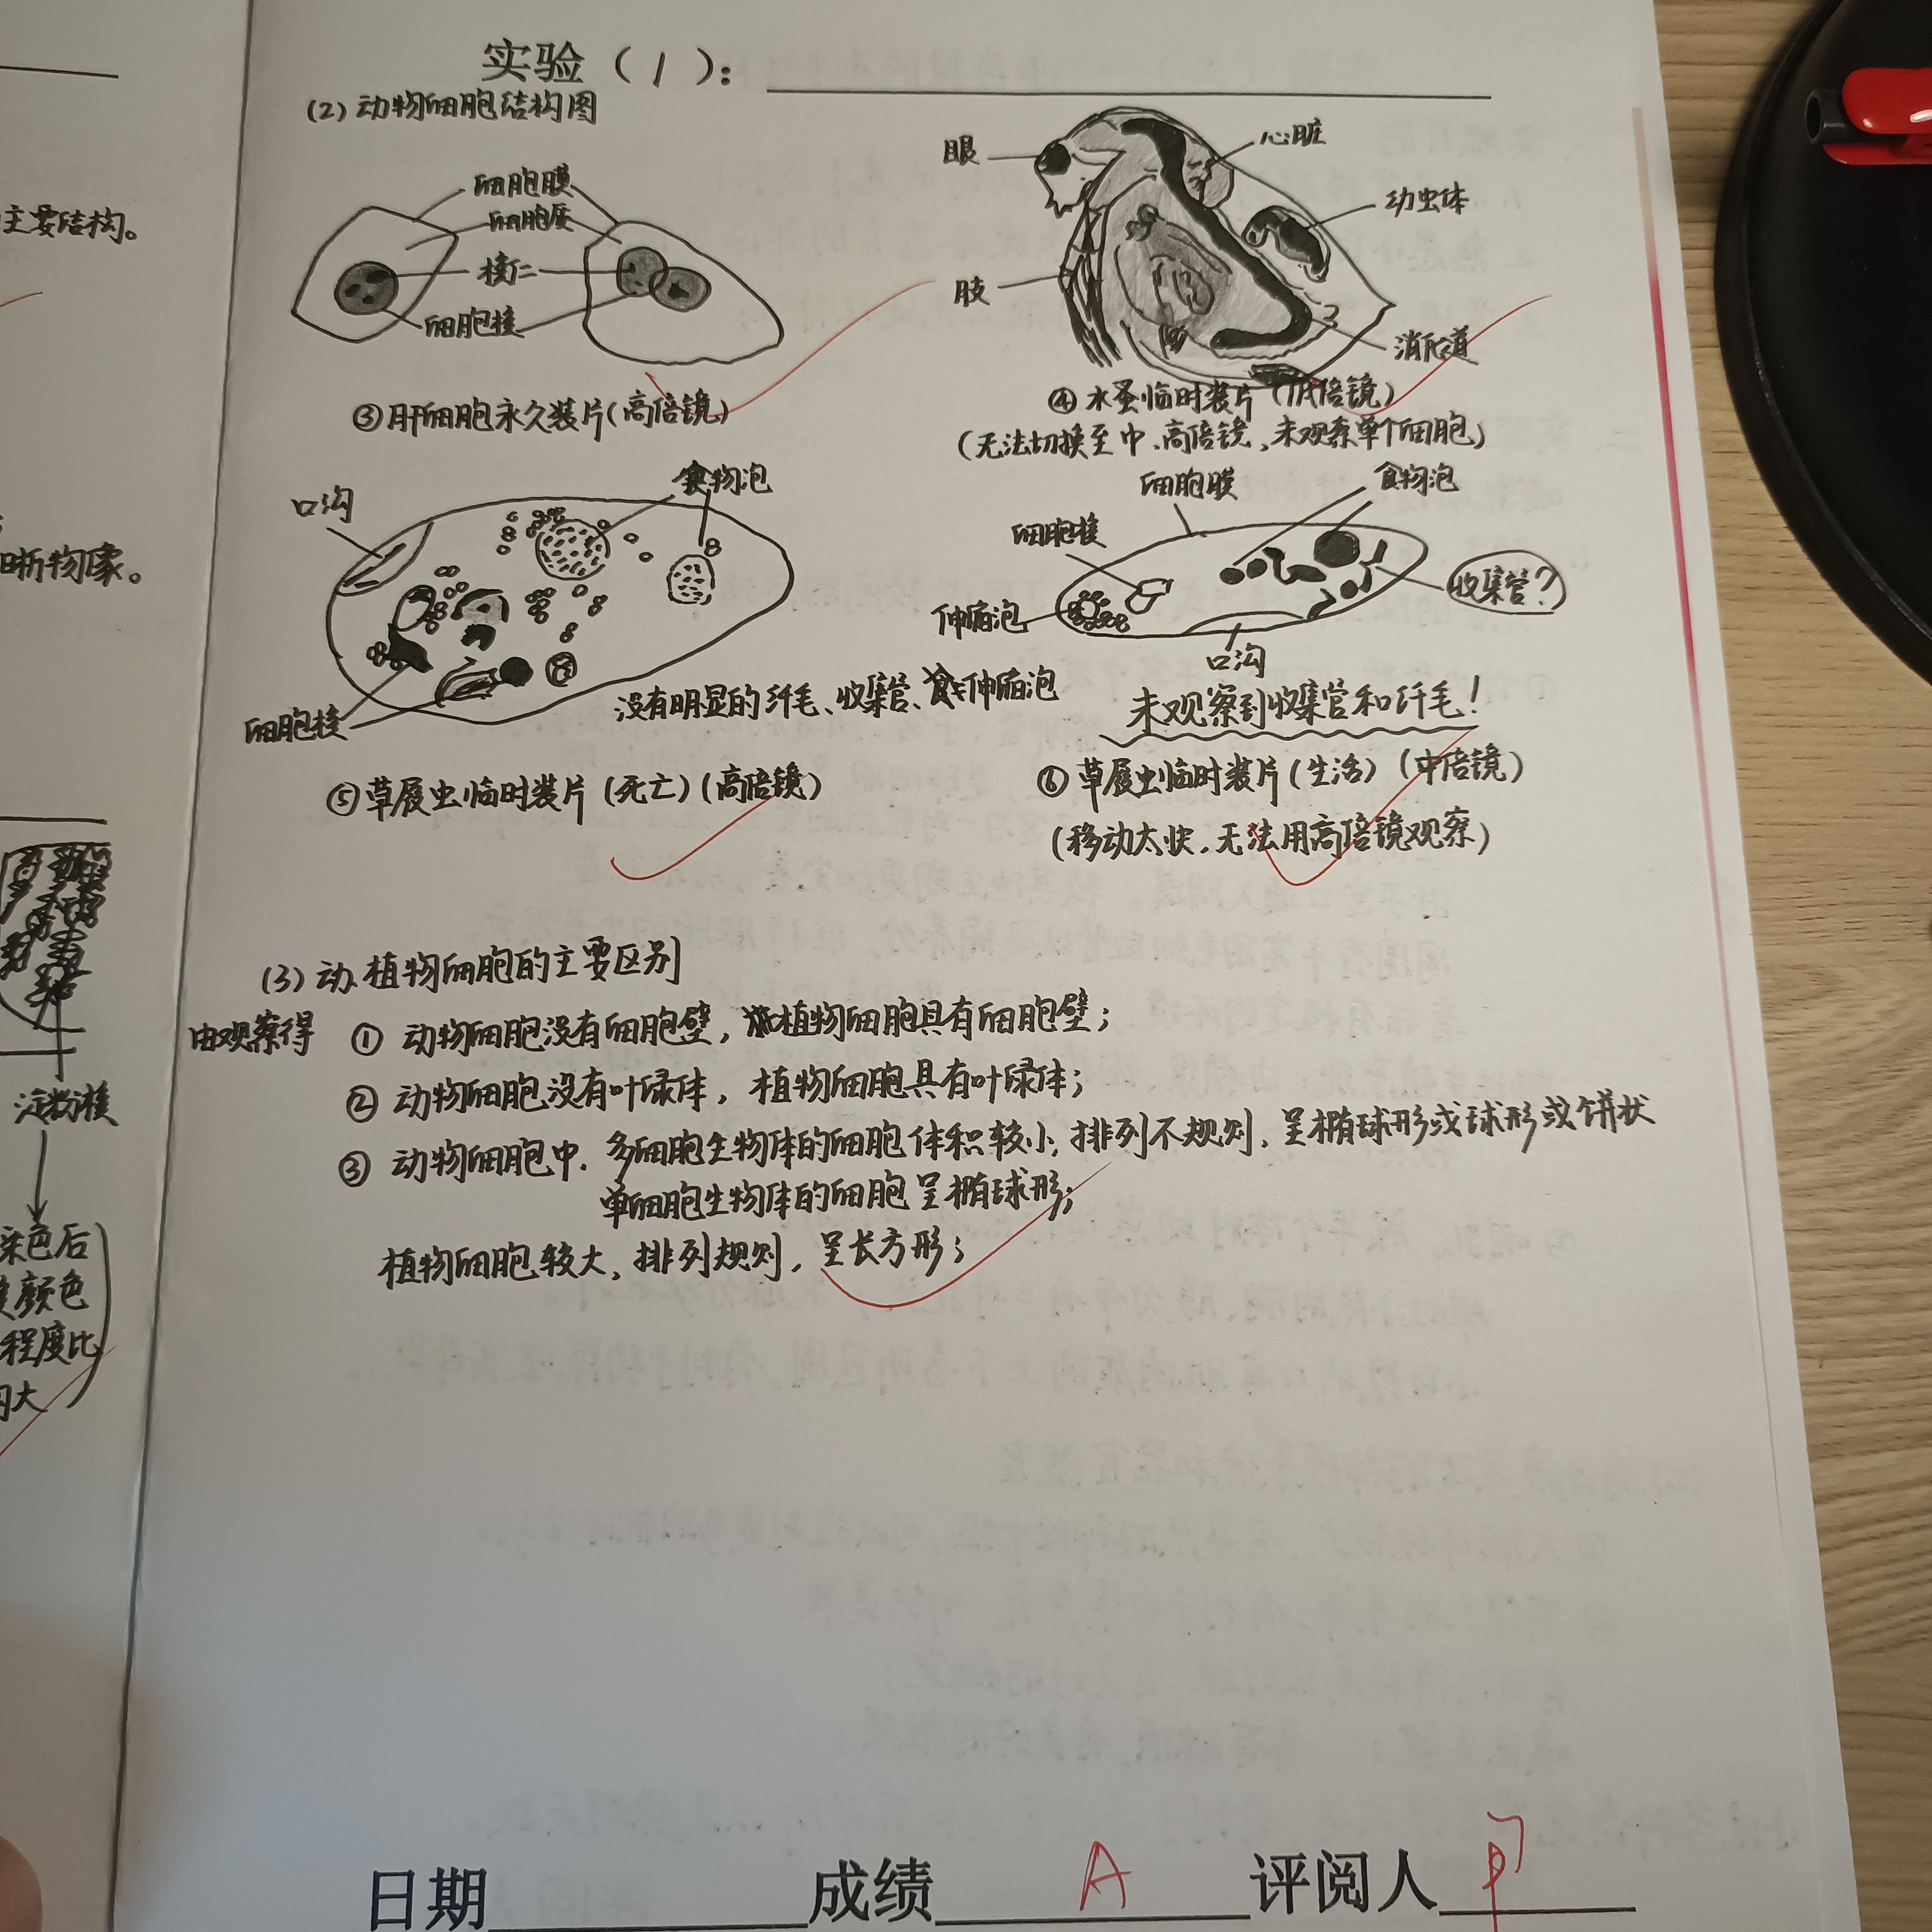 实验（1）：
(2) 动物细胞结构图
细胞膜
细胞质
核仁
细胞核
③肝细胞永久装片(高倍镜)
眼
心脏
幼虫体
肢
消化道
④ 水蚤临时装片 (低倍镜)
(无法切换至中、高倍镜,未观察单个细胞)
口沟
食物泡
细胞核
没有明显的纤毛、收集管、伸缩泡
⑤草履虫临时装片(死亡)(高倍镜)
细胞膜
食物泡
细胞核
收集管?
伸缩泡
口沟
未观察到收集管和纤毛!
⑥ 草履虫临时装片(生活)(中倍镜)
(移动太快,无法用高倍镜观察)
(3) 动、植物细胞的主要区别
由观察得 ① 动物细胞没有细胞壁,植物细胞具有细胞壁;
② 动物细胞没有叶绿体,植物细胞具有叶绿体;
③ 动物细胞中,多细胞生物体的细胞体积较小,排列不规则,呈椭球形或球形或饼状
单细胞生物体的细胞呈椭球形;
植物细胞较大,排列规则,呈长方形;
日期 成绩 A 评阅人
主要结构。
晰物像。
淀粉液
染色后
颜色
程度比
大